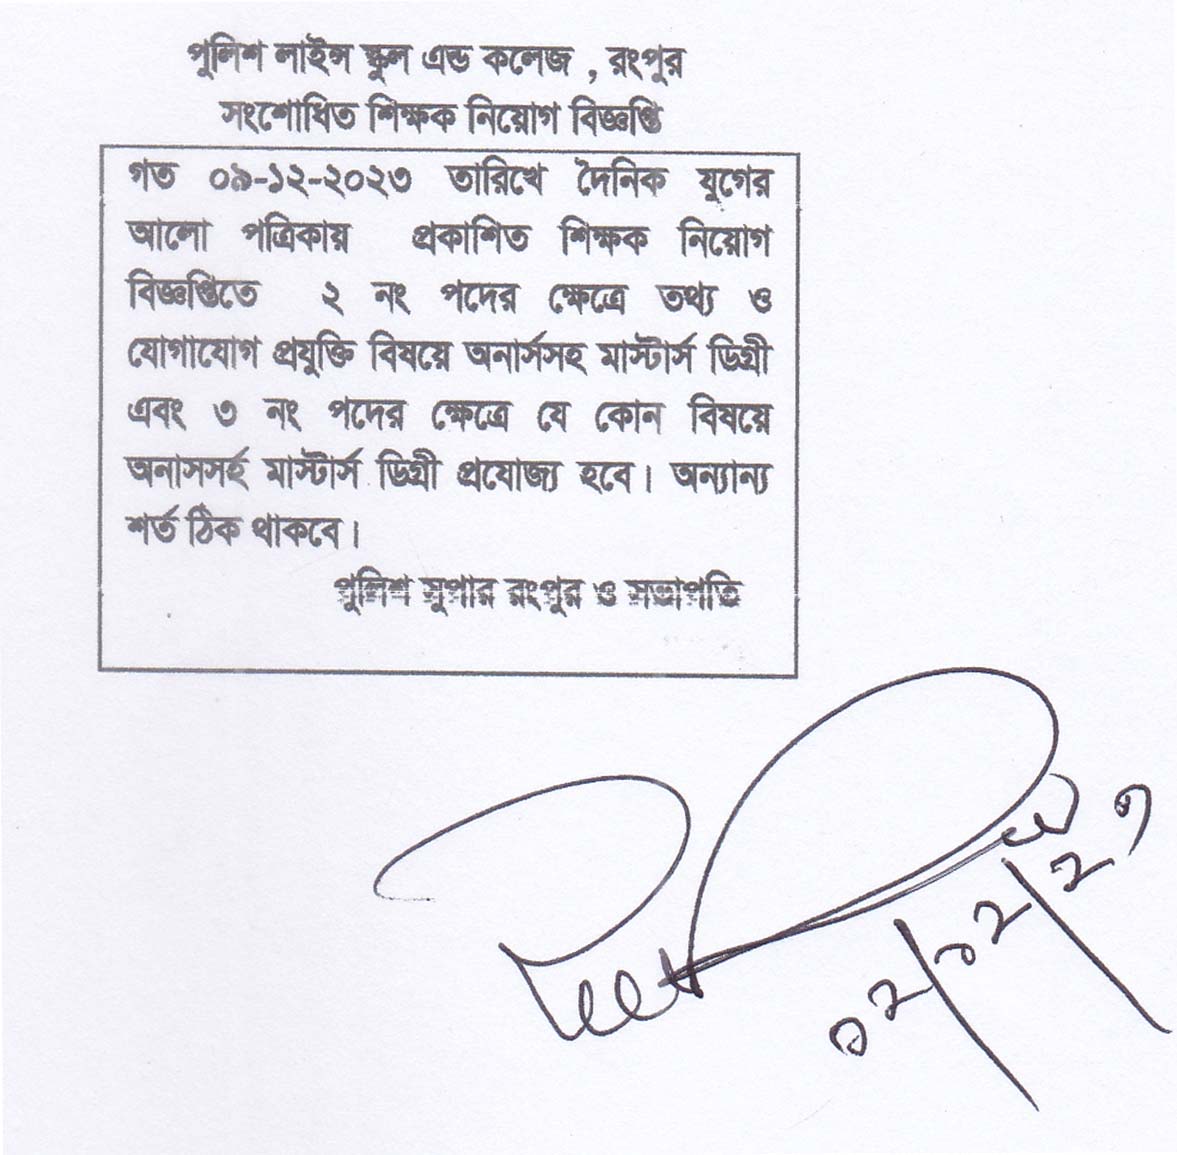 পুলিশ লাইন্স স্কুল এন্ড কলেজ , রংপুর
সংশোধিত শিক্ষক নিয়োগ বিজ্ঞপ্তি
গত ০৯-১২-২০২৩ তারিখে দৈনিক যুগের
আলো পত্রিকায় প্রকাশিত শিক্ষক নিয়োগ
বিজ্ঞপ্তিতে ২ নং পদের ক্ষেত্রে তথ্য ও
যোগাযোগ প্রযুক্তি বিষয়ে অনার্সসহ মাস্টার্স ডিগ্রী
এবং ৩ নং পদের ক্ষেত্রে যে কোন বিষয়ে
অনাসসর্হ মাস্টার্স ডিগ্রী প্রযোজ্য হবে। অন্যান্য
শর্ত ঠিক থাকবে।
পুলিশ সুপার রংপুর ও সভাপতি